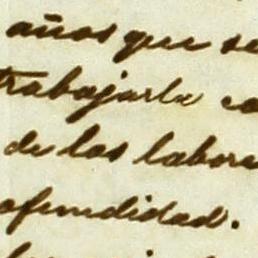 años que se
trabajarla co
de las labore
ofundidad.